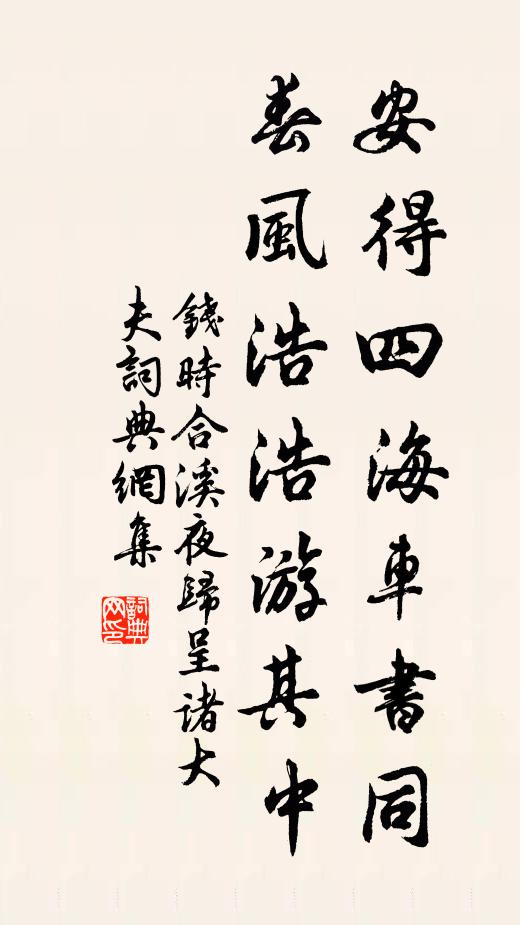 安得四海車書同
春風浩浩游其中
錢時合溪夜歸呈諸大
夫詞典網集
詞典网印